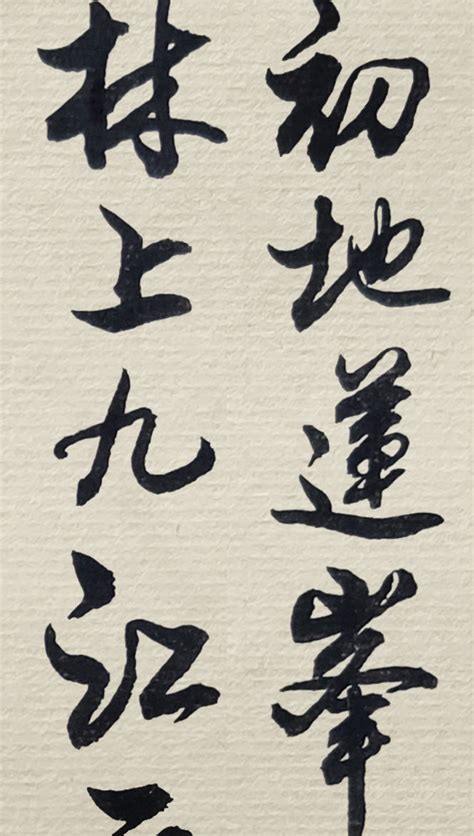 初地蓮峯
林上九江